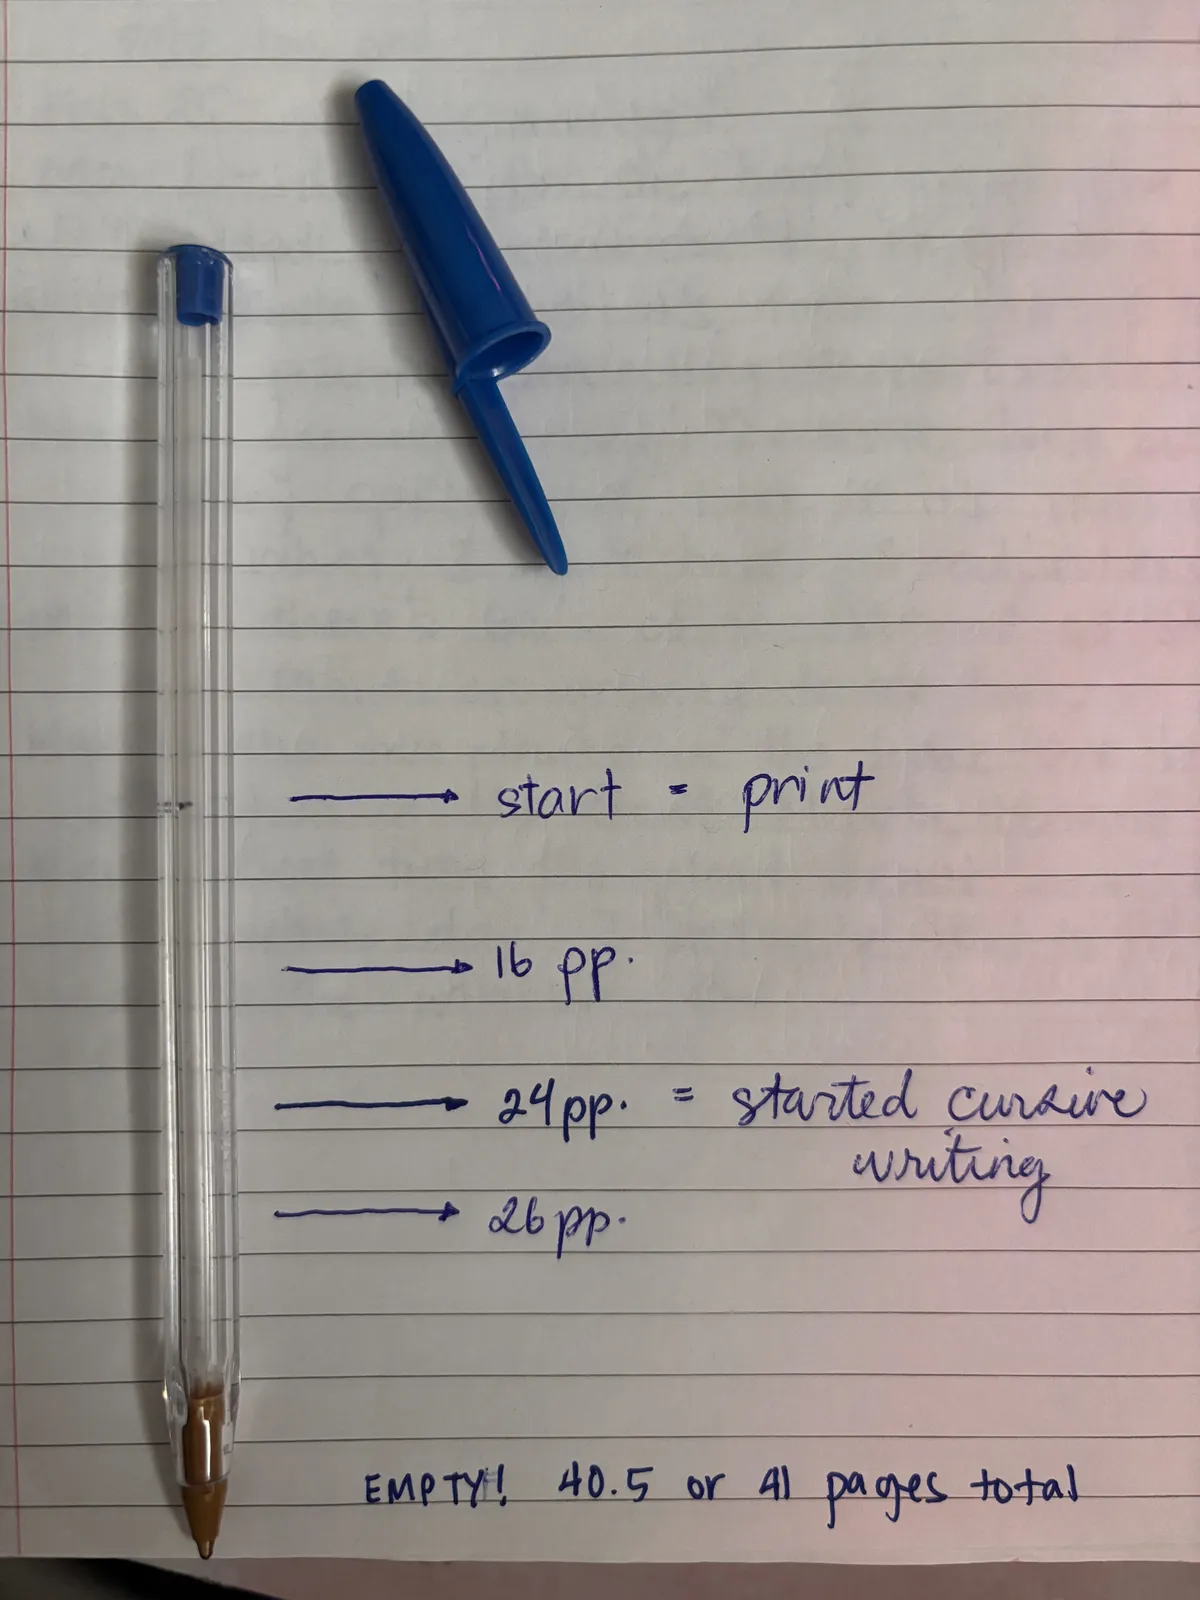 start = print
16 pp.
24 pp. = started cursive
writing
26 pp.
EMPTY! 40.5 or 41 pages total